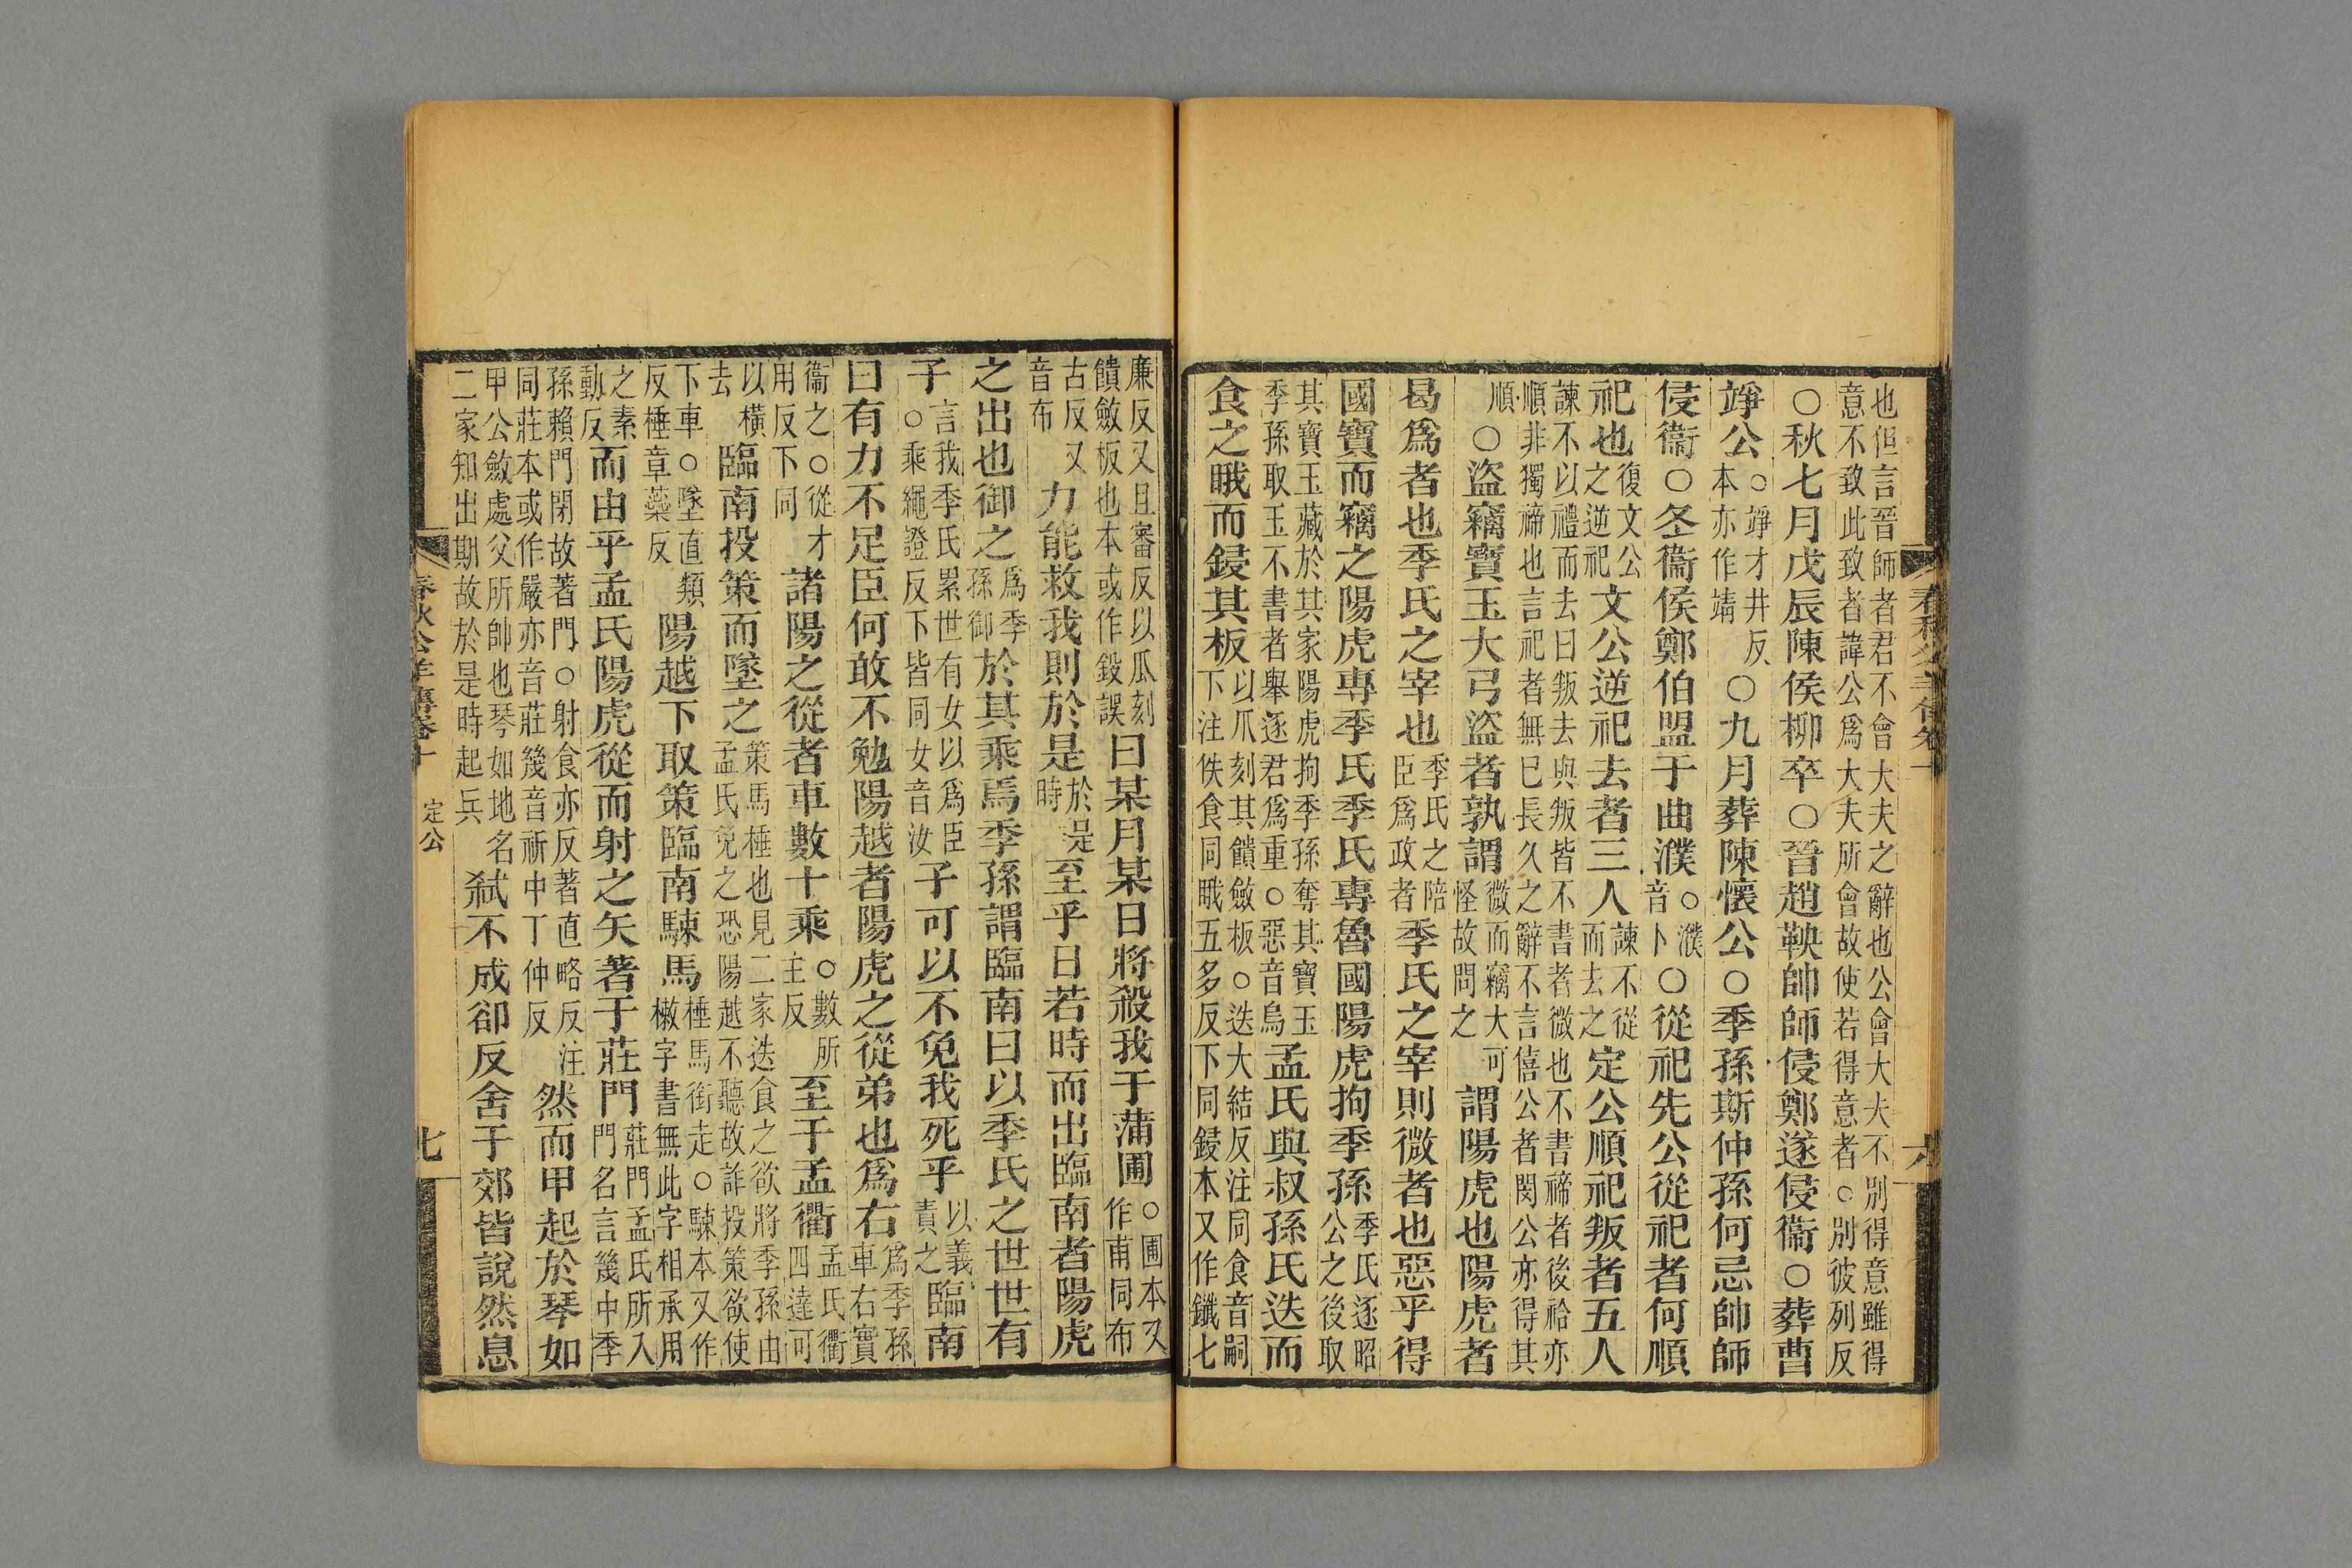 也但言晉師者君不會大夫之辭也公會大夫不別得意雖得
意不致此致者諱公爲大夫所會故使若得意者○別彼列反
○秋七月戊辰陳侯柳卒○晉趙鞅帥師侵鄭遂侵衞○葬曹
竫公○竫才井反本亦作靖○九月葬陳懷公○季孫斯仲孫何忌帥師
侵衞○冬衞侯鄭伯盟于曲濮○濮音卜○從祀先公從祀者何順
祀也復文公之逆祀文公逆祀去者三人諫不從而去之定公順祀叛者五人
諫不以禮而去曰叛去與叛皆不書者微也不書禘者後祫亦
順非獨禘也言祀者無已長久之辭不言僖公者閔公亦得其
順○盜竊寶玉大弓盜者孰謂微而竊大可怪故問之謂陽虎也陽虎者
曷爲者也季氏之宰也季氏之陪臣爲政者季氏之宰則微者也惡乎得
國寶而竊之陽虎專季氏季氏專魯國陽虎拘季孫季氏逐昭公之後取
其寶玉藏於其家陽虎拘季孫奪其寶玉
季孫取玉不書者舉逐君爲重○惡音烏孟氏與叔孫氏迭而
食之睋而鋟其板以爪刻其饋斂板○迭大結反注同食音嗣下注佚食同睋五多反下同鋟本又作鑯七
廉反又且審反以瓜刻饋斂板也本或作鍛誤曰某月某日將殺我于蒲圃○圃本又作甫同布
古反又音布力能救我則於是於是時至乎日若時而出臨南者陽虎
之出也御之爲季孫御於其乘焉季孫謂臨南曰以季氏之世世有
子言我季氏累世有女以爲臣○乘繩證反下皆同女音汝子可以不免我死乎以義責之臨南
曰有力不足臣何敢不勉陽越者陽虎之從弟也爲右爲季孫車右實
衞之○從才用反下同諸陽之從者車數十乘○數所主反至于孟衢孟氏衢四達可
以橫去臨南投策而墜之策馬棰也見二家迭食之欲將季孫由孟氏免之恐陽越不聽故詐投策欲使
下車○墜直類反棰章蘂反陽越下取策臨南駷馬棰馬銜走○駷本又作㯺字書無此字相承用
之素動反而由乎孟氏陽虎從而射之矢著于莊門莊門孟氏所入門名言幾中季
孫賴門閉故著門○射食亦反著直略反注同莊本或作嚴亦音莊幾音祈中丁仲反然而甲起於琴如
甲公斂處父所帥也琴如地名二家知出期故於是時起兵弒不成卻反舍于郊皆說然息
春秋公羊傳卷十
定公